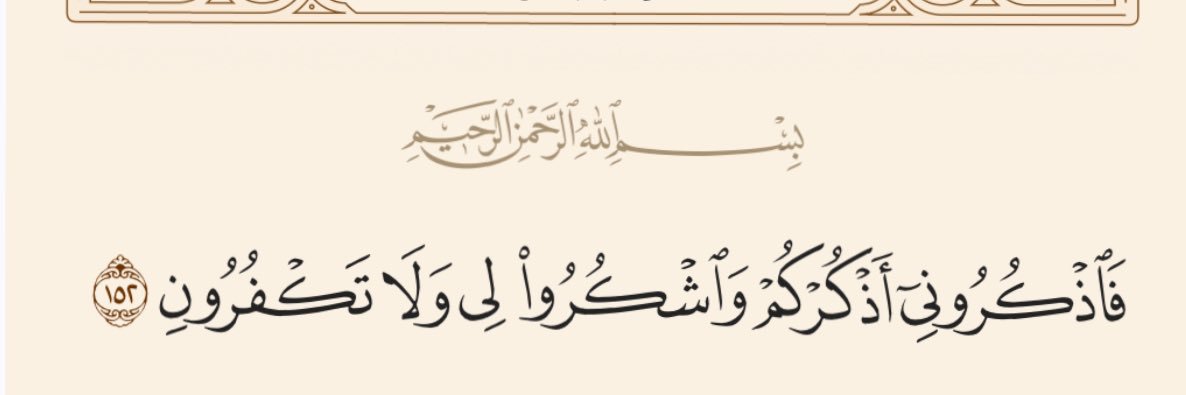 بِسْمِ ٱللَّهِ ٱلرَّحْمَٰنِ ٱلرَّحِيمِ
فَٱذْكُرُونِىٓ أَذْكُرْكُمْ وَٱشْكُرُوا۟ لِى وَلَا تَكْفُرُونِ ١٥٢